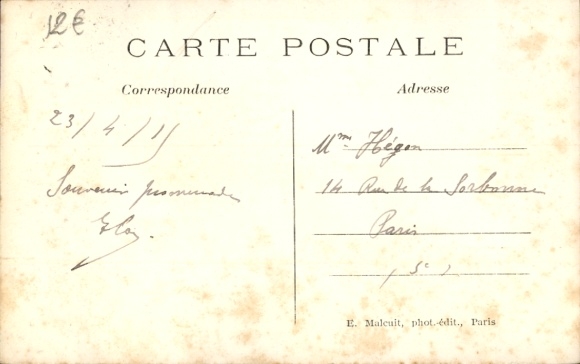 12€
CARTE POSTALE
Correspondance
Adresse
23/4/15
Souvenir promenade
Mme Hégon
14 Rue de la Sorbonne
Paris
(5e)
E. Malcuit, phot.-édit., Paris